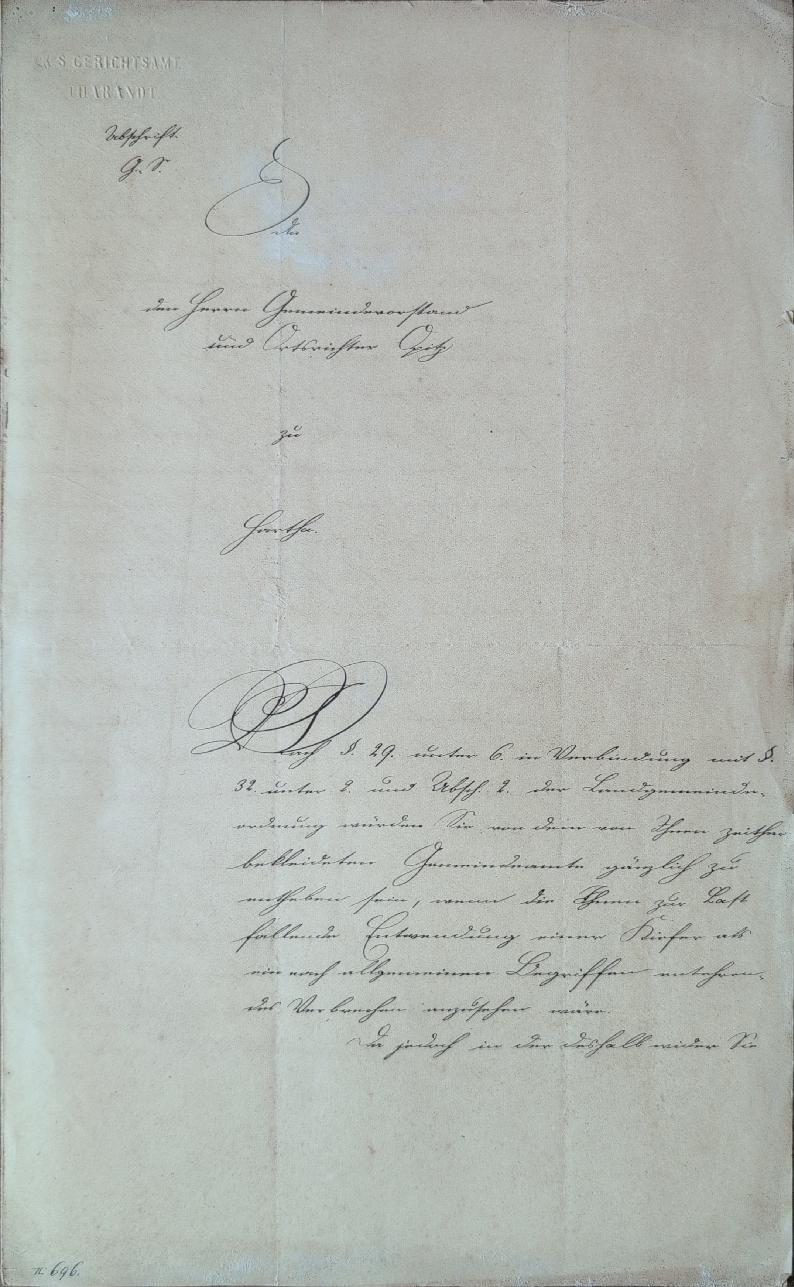 K. S. GERICHTSAMT
THARANDT
Abschrift.
G. S.
An
den Herrn Gemeindevorstand
und Ortsrichter Opitz
zu
Hartha.
Nach §. 29. unter 6. in Verbindung mit §.
32. unter 2. und Absch. 2. der Landgemeinde-
ordnung würden Sie von dem von Ihnen zeither
bekleideten Gemeindeamte gänzlich zu
entheben sein, wenn die Ihnen zur Last
fallende Entwendung einer Kiefer als
ein nach allgemeinen Begriffen entehren-
des Verbrechen anzusehen wäre.
Da jedoch in der deshalb wider Sie
696.